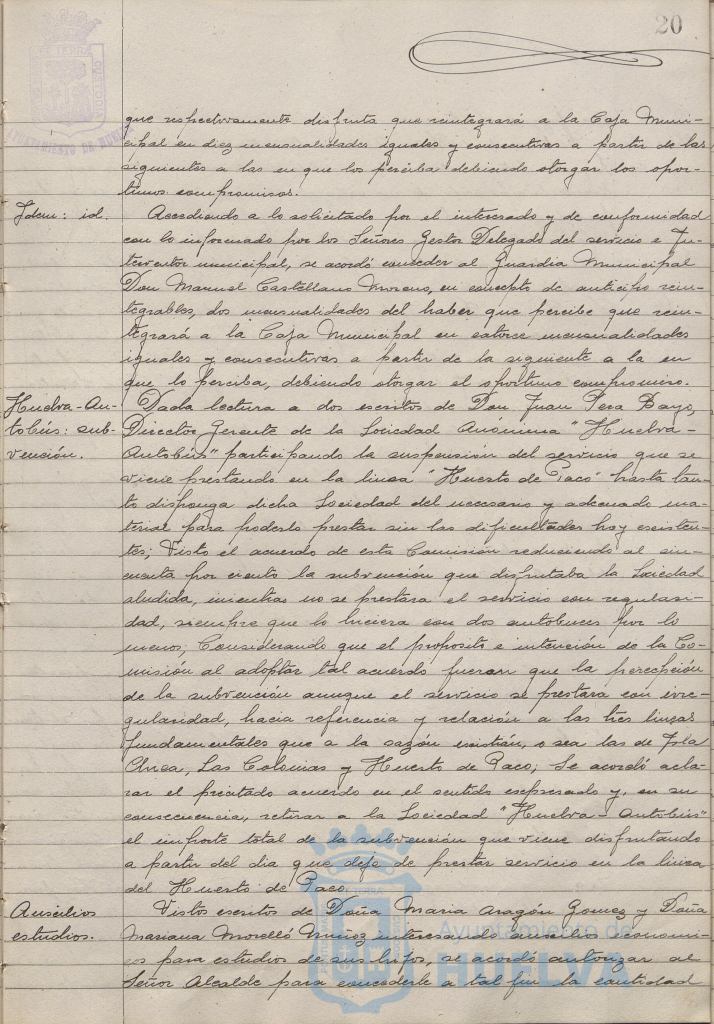 20
que respectivamente disfruta que reintegrará a la Caja Muni-
cipal en diez mensualidades iguales y consecutivas a partir de las
siguientes a las en que los perciba debiendo otorgar los opor-
tunos compromisos.
Idem: id.
Accediendo a lo solicitado por el interesado y de conformidad
con lo informado por los Señores Gestor Delegado del servicio e In-
terventor municipal, se acordó conceder al Guardia Municipal
Don Manuel Castellano Moreno, en concepto de anticipo rein-
tegrables, dos mensualidades del haber que percibe que rein-
tegrará a la Caja Municipal en catorce mensualidades
iguales y consecutivas a partir de la siguiente a la en
que lo perciba, debiendo otorgar el oportuno compromiso.
Huelva-Au-
tobús: sub-
vención.
Dada lectura a dos escritos de Don Juan
Director Gerente de la Sociedad Anonima "Huelva-
Autobús" participando la suspensión del servicio que se
viene prestando en la linea "Huerto de Paco" hasta tan-
to disponga dicha Sociedad del necesario y adecuado ma-
terial para poderlo prestar sin las dificultades hoy existen-
tes; Visto el acuerdo de esta Comisión reduciendo al cin-
cuenta por ciento la subvención que disfrutaba la Sociedad
aludida, mientras no se prestara el servicio con regulari-
dad, siempre que lo hiciera con dos autobuses por lo
menos; Considerando que el proposito e intención de la Co-
misión al adoptar tal acuerdo fueran que la percepción
de la subvención aunque el servicio se prestara con irre-
gularidad, hacia referencia y relación a las tres lineas
fundamentales que a la sazón existían, o sea las de Isla
Chica, Las Colonias y Huerto de Paco; Se acordó acla-
rar el precitado acuerdo en el sentido expresado y, en su
consecuencia, retirar a la Sociedad "Huelva-Autobús"
el importe total de la subvención que viene disfrutando
a partir del dia que deje de prestar servicio en la linea
del Huerto de Paco.
Auxilios
estudios.
Vistos escritos de Doña Maria Aragón Gomez y Doña
Mariana Morelló Muñoz interesando auxilio economi-
co para estudios de sus hijos, se acordó autorizar al
Señor Alcalde para concederle a tal fin la cantidad
Ayuntamiento de
HUELVA